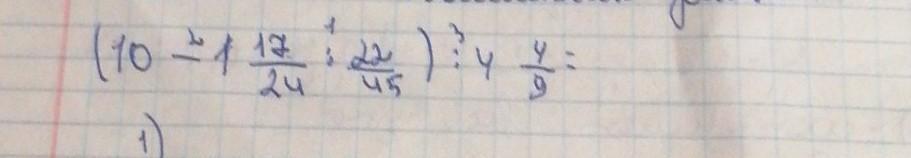 (10 - 1 17/24 : 22/45) : 4 4/9 =
1)